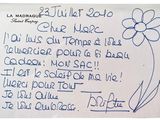 LA MADRAGUE
Saint Tropez
23 Juillet 2010
Cher Marc
J'ai mis du temps à vous
remercier pour le si beau
Cadeau: MON SAC!!
Il est le soleil de ma vie!
Merci pour TOUT
Je vous aime
Je vous embrasse